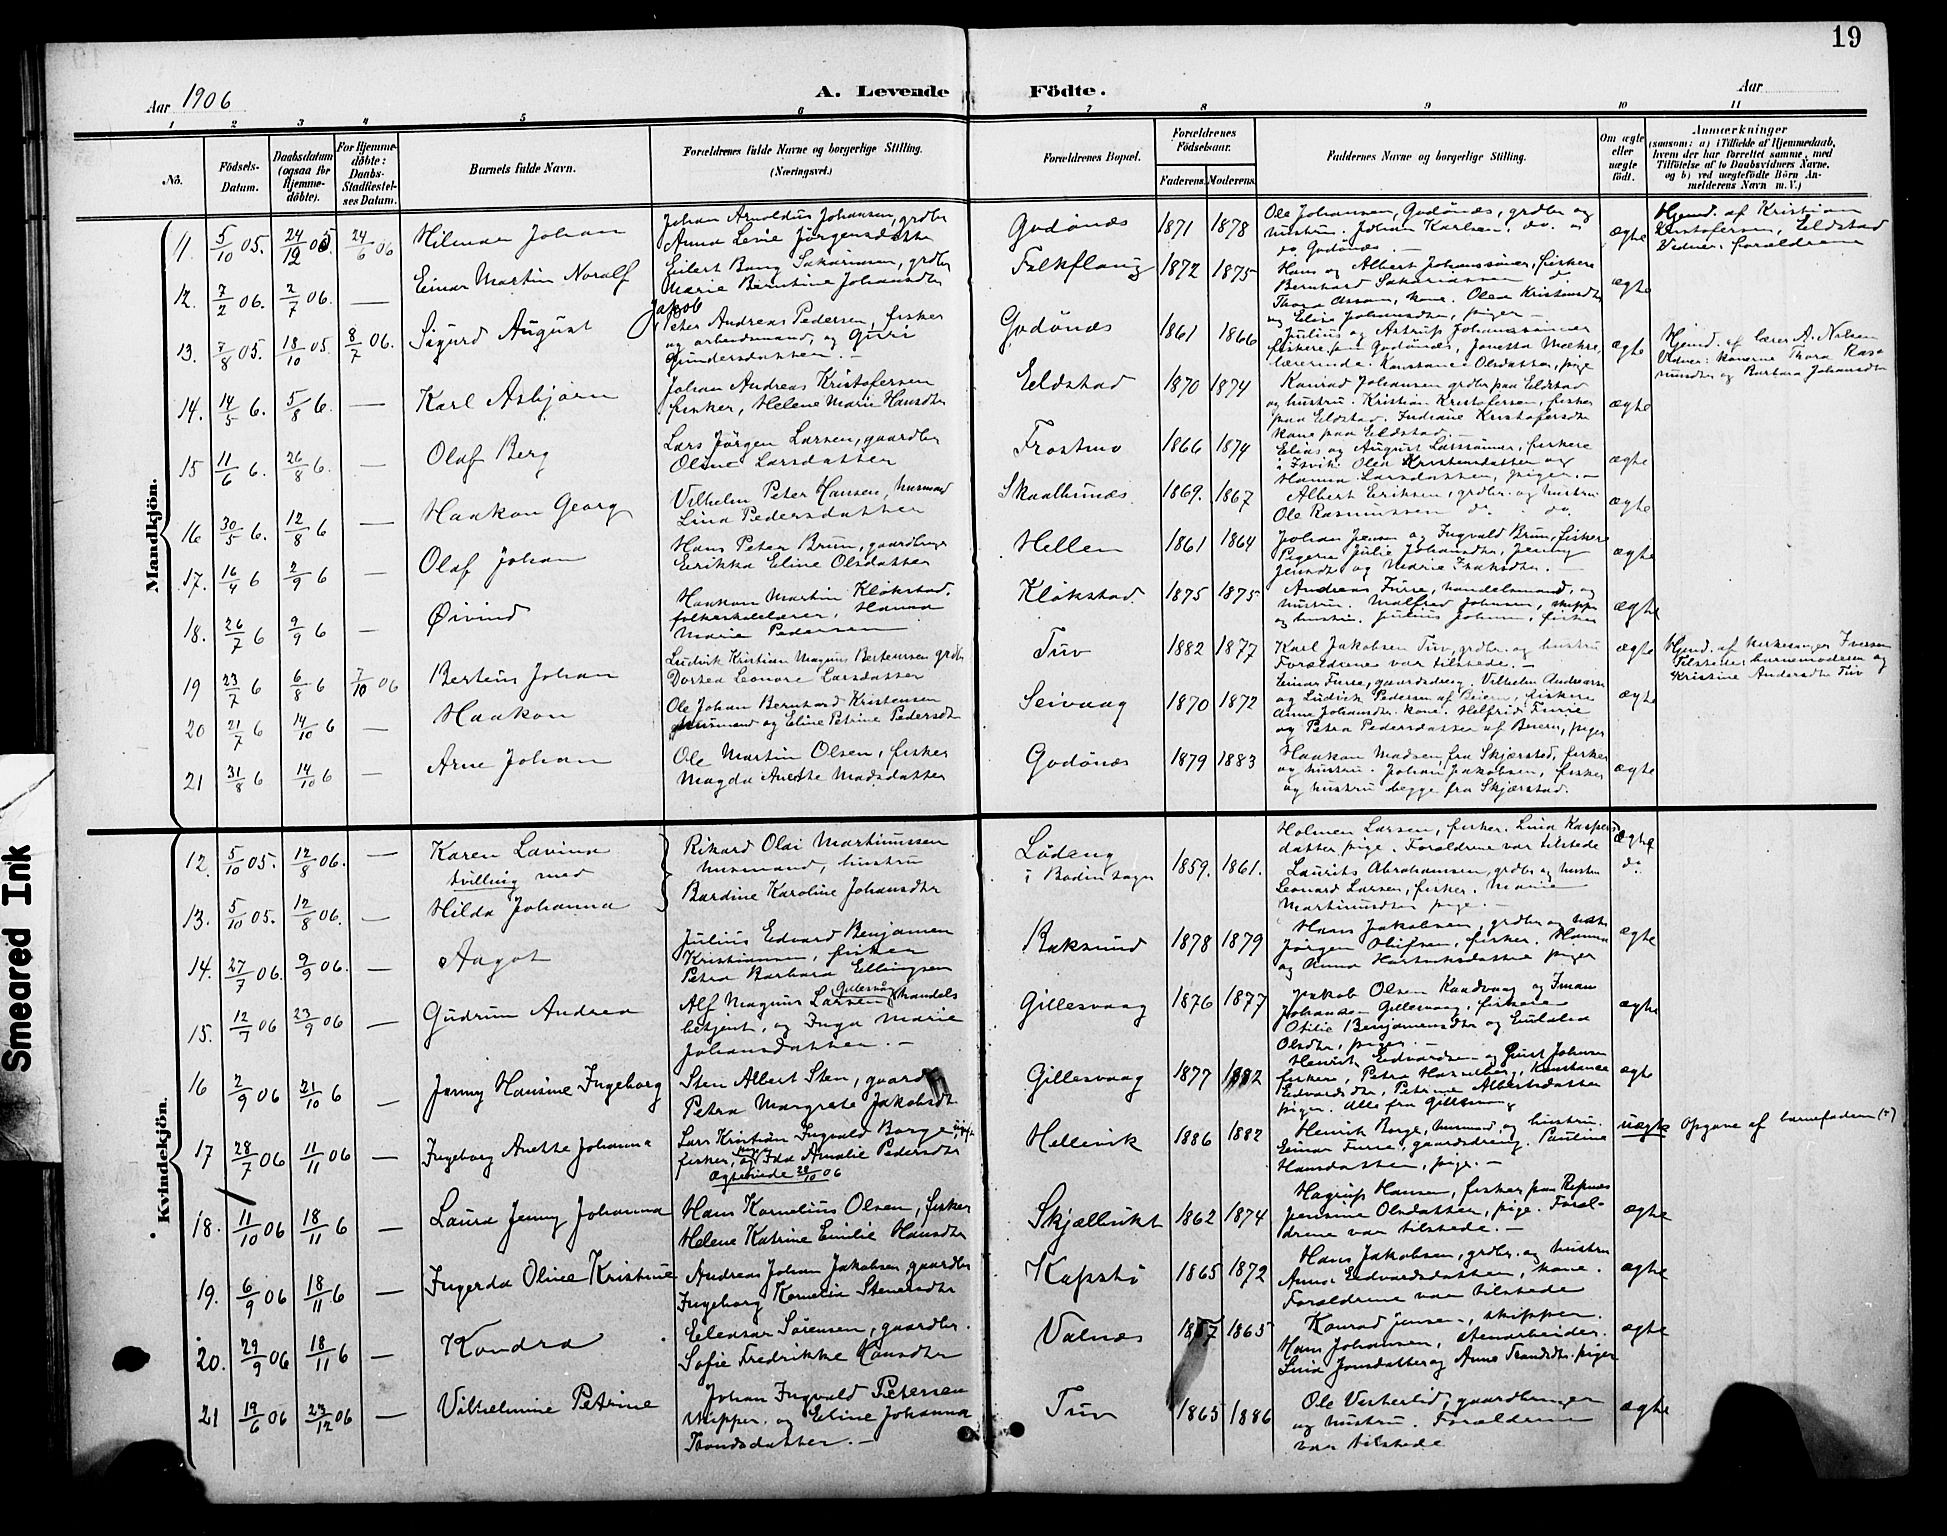 19
Aar 1906
A. Levende Födte.
Aar
1 2 3 4 5 6 7 8 9 10 11
No.
Födsels-Datum.
Daabsdatum (ogsaa for Hjemme-döbte).
For Hjemme-döbte: Daabs-Stadfæstel-ses Datum.
Barnets fulde Navn.
Forældrenes fulde Navne og borgerlige Stilling. (Næringsvei.)
Forældrenes Bopæl.
Forældrenes Födselsaar.
Faderens. Moderens.
Faddernes Navne og borgerlige Stilling.
Om ægte eller uægte födt.
Anmærkninger
(saasom: a) i Tilfælde af Hjemmedaab, hvem der har forrettet samme, med Tilföielse af to Daabsvidners Navne, og b) ved uægtefödte Börn An-melderens Navn m. V.)
Mandkjön.
11. 5/10 05. 24/12 05 24/6 06 Hilmar Johan
Johan Arnoldus Johansen, grdbr
Anna Levie Jørgensdatter
Godønæs 1871 1878
Ole Johansen, Godønæs, grdbr og
hustru. Johan Karlsen, do. o
do Godønæs. —
ægte
Hjemd. af Kristian
Kristofersen, Eldstad
Vidner: forældrene
12. 7/2 06. 2/7 06. — Einar Martin Noralf
Eilert Bang Sakariasen, grdbr
Marie Berntine Johansdtr
Falkflaug 1872 1875
Hans og Albert Johanssønner, fiskere
Bernhard Sakariassen do
Thora Assam, kone. Olea Kristensdtr
og Elise Johansdtr, piger —
ægte
13. 7/8 05. 18/10 05 8/7 06. Sigurd August
Jakob
Peter Andreas Pedersen, fisker
og arbeidsmand, og Guri
Gundersdatter. —
Godønæs 1861 1866
Julius og Astrup Johanssønner
fiskere paa Godønæs, Jonetta Mæhre,
lærerinde. Konstance Olsdatter, pige
ægte
Hjemd. af lærer A. Nilsen
Vidner: konerne Thora Ras-
musdtr og Barbara Johansdtr
14. 14/5 6. 5/8 6. — Karl Asbjørn
Johan Andreas Kristofersen
fisker, Helene Marie Hansdtr
Eldstad 1870 1874
Konrad Johansen grdbr paa Eldstad
og hustru. Kristian Kristofersen, fisker
paa Eldstad, Indiane Kristofersdtr
kone paa Eldstad —
ægte
15 11/6 6. 26/8 6. — Olaf Berg
Lars Jørgen Larsen, gaardbr
Oline Larsdatter
Frostmo 1866 1874
Elias og August Larssønner, fiskere
i Isvik. Olea Kristensdatter og
Hanna Larsdatter, piger. —
ægte
16 30/5 6. 12/8 6 — Haakon Georg
Vilhelm Peter Hansen, husmand
Lina Pedersdatter
Skaalbunæs 1869. 1867
Albert Eriksen, grdbr. og hustru
Ole Rasmussen do. do.
ægte
17. 16/4 6 2/9 6 — Olaf Johan
Hans Peter Brun, gaardbruger
Erikka Eline Olsdatter
Hellen 1861 1864
Johan Jensen og Ingvald Brun, fiskere
Pigerne Julie Johansdtr, Jenny
Jensdtr og Marie Isaksdtr. —
ægte
18. 26/7 6 9/9 6 — Øivind
Haakon Martin Kløkstad.
folkeskolelærer, Hanna
Marie Pedersen
Kløkstad. 1875 1875
Andreas Furre, handelsmand, og
hustru. Malfred Johnsen, skipper
og hustru. Julius Johnsen, fisker
ægte
19 23/7 6 6/8 6 7/10 06 Bertius Johan
Ludvik Kristian Magnus Berteussen grdbr
Dortea Leonore Larsdatter
Tuv 1882 1877
Karl Jakobsen Tuv, grdbr. og hustru
Forældrene var tilstede. —
ægte
Hjemd. af kirkesanger Iversen
Tilstede: barnemoderen og
Kristine Andersdtr Tuv
20 21/7 6 14/10 6 — Haakon
Ole Johan Bernhard Kristensen
husmand og Eline Petrine Pedersdtr
Seivaag 1870 1872
Einar Furre, gaardsdreng. Vilhelm Andreassen
og Ludvik Pedersen af Beiern, fiskere
Anne Johansdtr. kone. Helfrid Furre
og Petra Pedersdatter af Beiern, piger
ægte
21 31/8 6 14/10 6 — Arne Johan
Ole Martin Olsen, fisker
Magda Anette Madsdatter
Godønæs 1879 1883
Haakon Madsen, fra Skjærstad, fisker
og hustru. Johan Jakobsen, fisker
og hustru begge fra Skjærstad.
ægte
Kvindekjön.
12. 5/10 05. 12/8 06. — Karen Lavina
tvilling med
13. 5/10 05. 12/8 06. — Hilda Johanna
Rikard Olai Martinussen
husmand, hustru
Bardine Karoline Johansdtr
Lødeng
i Bodin sogn
1859. 1861.
Holmen Larsen, fisker. Lina Kaspers-
datter, pige. Forældrene var tilstede
Laurits Abrahamsen, grdbr og hustru
Leonard Larsen, fisker. Marie
Martinusdtr pige. —
ægte
do.
14. 27/7 06. 9/9 06. — Aagot
Julius Edvard Benjamin
Kristiansen, fisker
Petra Barbara Ellingsen
Kaksund 1878 1879
Hans Jakobsen, grdbr og hustr
Jørgen Olufsen, fisker. Hanna
og Anna Hartviksdatter piger
ægte
15. 12/7 06 23/9 06 — Gudrun Andrea
Gillesvåg
Alf Magnus Larsen, handels
betjent, og Inga Marie
Johansdatter. —
Gillesvaag 1876 1877
Jakob Olsen Kaadvaag og Iman
Johansen Gillesvaag, fiskere
Otilie Benjaminsdtr og Eulalia
Olsdtr, piger. —
ægte
16 2/9 06 21/10 6 — Jenny Hansine Ingeborg
Sten Albert Sten, gaardbr
Petra Margrete Jakobsdtr
Gillesvaag 1877 1882
Henrik Edvardsen og Gurt Johnsen
fiskere, Petra Hasselberg, Konstanse
Edvardsdtr, Petrine Albertsdatter
piger. Alle fra Gillesvaag
ægte
17 28/7 06 11/11 06 — Ingeborg Anette Johanna
Lars Kristian Ingvald Borge, ugift
fisker, og pige Ida Amalie Pedersdtr
Ægteviede 28/10 06
Hellevik 1886 1882
Henrik Borge, husmand og hustru.
Einar Furre, gaardsdreng. Pauline
Hansdatter, pige. —
uægte Opgave af barnefaderen (?)
18. 11/10 06 18/11 6 — Laura Jenny Johanna
Hans Kornelius Olsen, fisker
Helene Katrine Emilie Hansdtr
Skjællukt 1862 1874
Hagrup Hansen, fisker paa Repnæs
Jensine Olsdatter, pige. Foræl-
drene var tilstede. —
ægte
19. 6/9 06 18/11 6 — Ingerda Oline Kristine
Andreas Johan Jakobsen gaardbr
Ingeborg Kornelia Stenersdtr
Kapstø 1865 1872
Hans Jakobsen, grdbr. og hustru
Anna Edvardsdatter, kone.
Forældrene var tilstede
ægte
20. 29/9 06 18/11 6 — Kondra
Eleasar Sørensen, gaardbr.
Sofie Fredrikke Hansdtr
Valnæs 1857 1865
Konrad Jensen, skipper.
Hans Johansen, stenarbeider.
Lina Jonsdatter og Anna Trondsdtr. piger
ægte
21 19/6 06 23/12 06 — Vilhelmine Petrine
Johan Ingvald Petersen
skipper. og Eline Johanna
Trondsdatter. —
Tuv 1865 1886
Ole Vesterlid, gaardbruger
og hustru. Forældrene
var tilstede
ægte
Smeared Ink